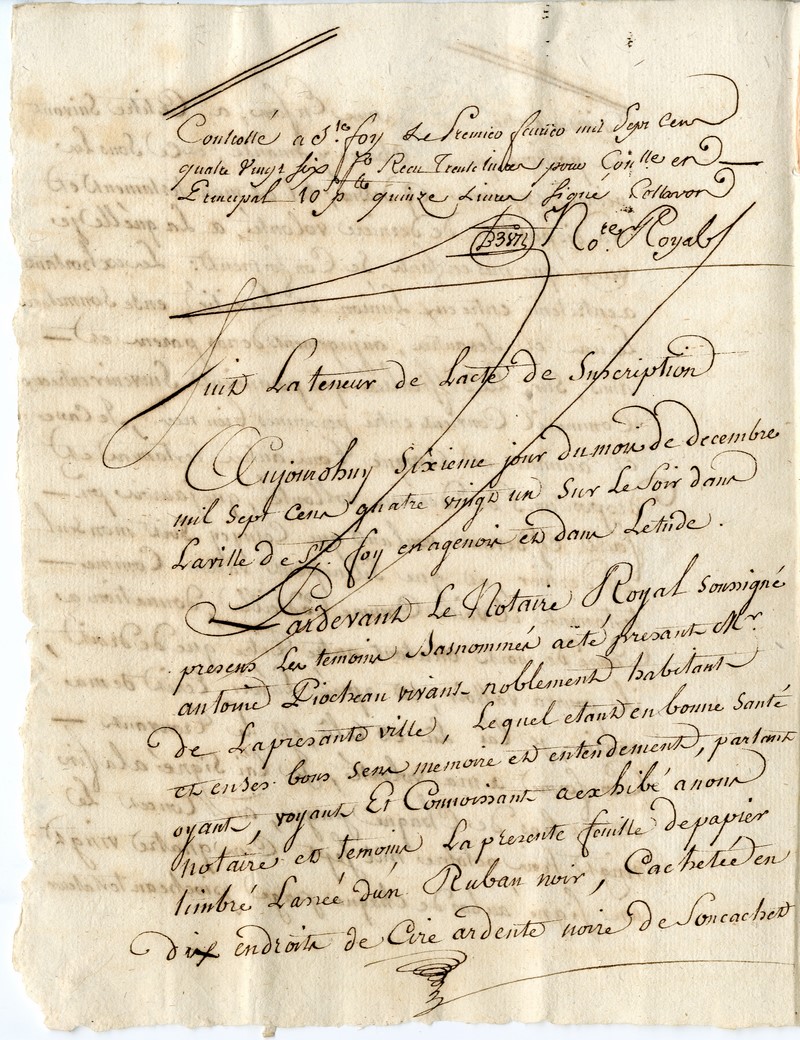 Controllé a S.te foy Le Premier fevrier mil Sept Cens
quatre Vingt Six Recu Trente livres pour Con.lle en
Principal 10 s p quinze Livres Signé
No.re Royal
Suit La teneur de Lacte de Suscription
Aujourdhuy Sixieme jour du mois de decembre
mil Sept Cens quatre vingt un Sur Le Soir dans
La ville de S.te foy en agenois et dans Letude .
Pardevant Le Notaire Royal Soussigné
presens Les temoins Basnommés aëté presant M.r
antoine Piocheau vivant noblement habitant
de Lapresante ville, Lequel etant en bonne Santé
et enses bons Sens memoire et entendement, parlant
oyant, voyant Et Connoissant aexhibé anous
notaire et temoins La presente feuille depapier
timbré Lancée dún Ruban noir, Cachetée en
dix endroits de Cire ardente noire de Soncachet